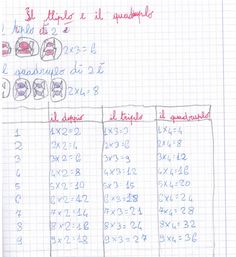 Il triplo e il quadruplo
l triplo di 2 è
2x3=6
l quadruplo di 2 è
2x4=8
il doppio il triplo il quadruplo
1 1x2=2 1x3=3 1x4=4
2 2x2=4 2x3=6 2x4=8
3 3x2=6 3x3=9 3x4=12
4 4x2=8 4x3=12 4x4=16
5 5x2=10 5x3=15 5x4=20
6 6x2=12 6x3=18 6x4=24
7 7x2=14 7x3=21 7x4=28
8 8x2=16 8x3=24 8x4=32
9 9x2=18 9x3=27 9x4=36